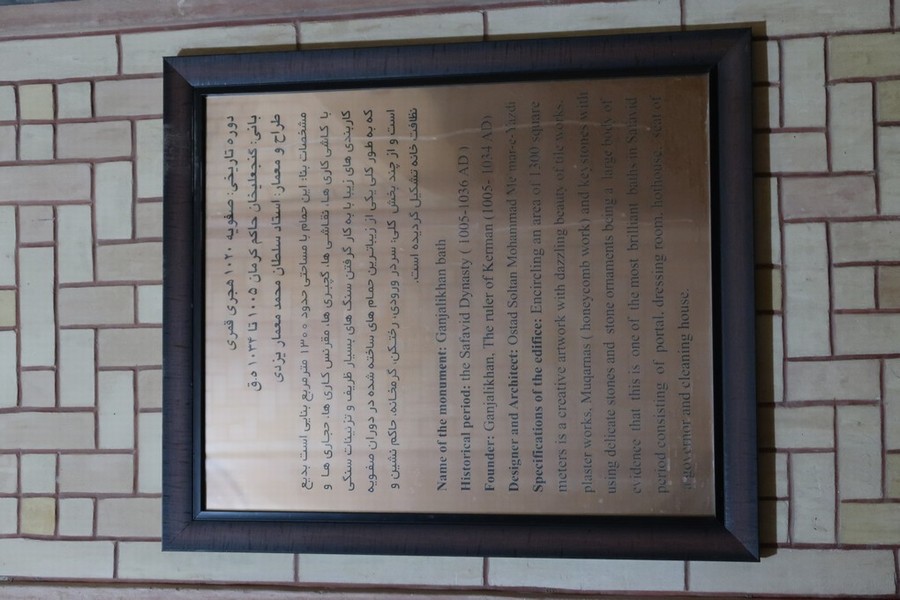 دوره تاریخی: صفویه ۱۰۲۰ هجری قمری
بانی: گنجعلیخان حاکم کرمان ۱۰۰۵ تا ۱۰۳۴ ه.ق
طراح و معمار: استاد سلطان محمد معمار یزدی
مشخصات بنا: این حمام با مساحتی حدود ۱۳۰۰ مترمربع بنایی است بدیع
با کاشی کاری ها، نقاشی ها، گچبری ها، مقرنس کاری ها، حجاری ها و
کاربندی های زیبا با به کار گرفتن سنگ های بسیار ظریف و تزئینات سنگی
که به طور کلی یکی از زیباترین حمام های ساخته شده در دوران صفویه
است و از چند بخش کلی: سردر ورودی، رختکن، گرمخانه، حاکم نشین و
نظافت خانه تشکیل گردیده است.
Name of the monument: Ganjalikhan bath
Historical period: the Safavid Dynasty ( 1005-1036 AD )
Founder: Ganjalikhan, The ruler of Kerman (1005- 1034 AD)
Designer and Architect: Ostad Soltan Mohammad Me'mar-e-Yazdi
Specifications of the edifice: Encircling an area of 1300 square
meters is a creative artwork with dazzling beauty of tile works,
plaster works, Muqarnas ( honeycomb work) and keystones with
using delicate stones and stone ornaments being a large body of
evidence that this is one of the most brilliant baths in Safavid
period consisting of portal, dressing room, hothouse, seat of
governor and cleaning house.